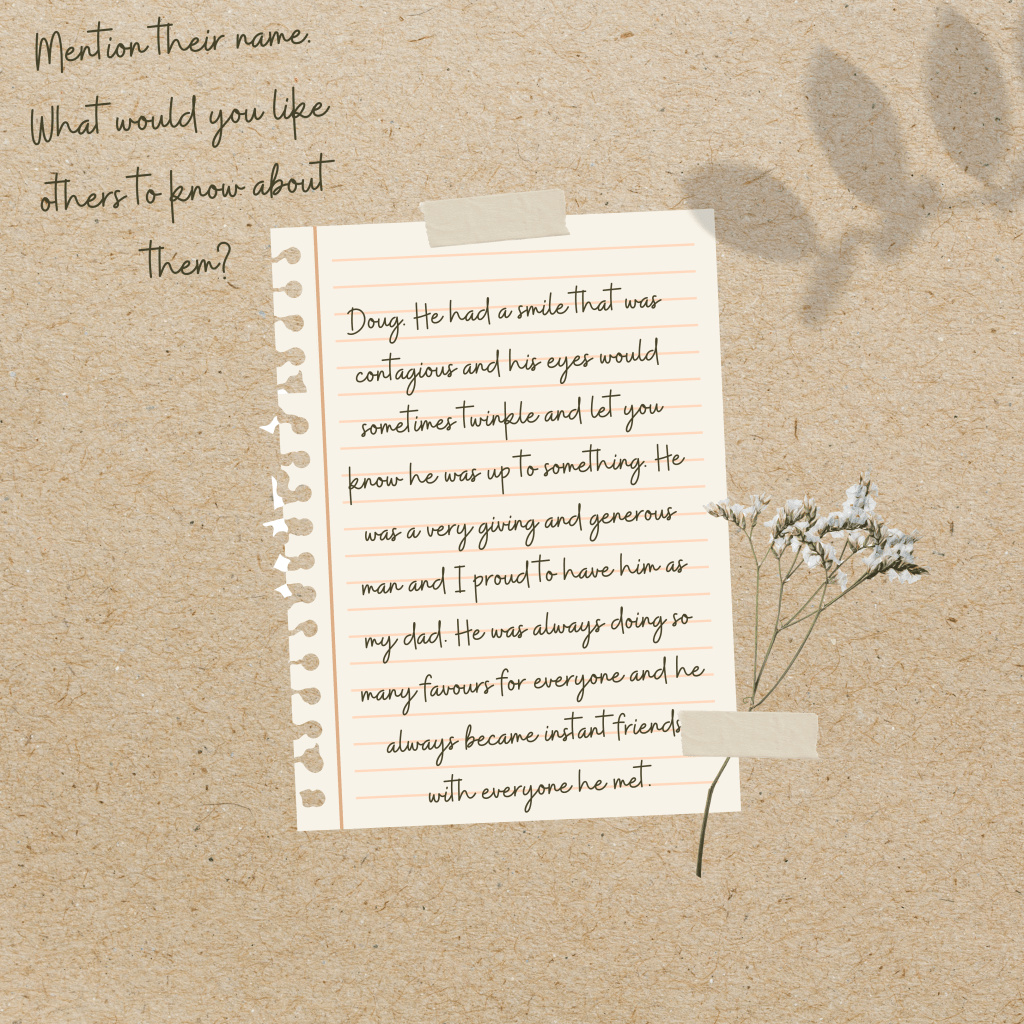 Mention their name.
What would you like
others to know about
them?
Doug. He had a smile that was
contagious and his eyes would
sometimes twinkle and let you
know he was up to something. He
was a very giving and generous
man and I proud to have him as
my dad. He was always doing so
many favours for everyone and he
always became instant friends
with everyone he met.